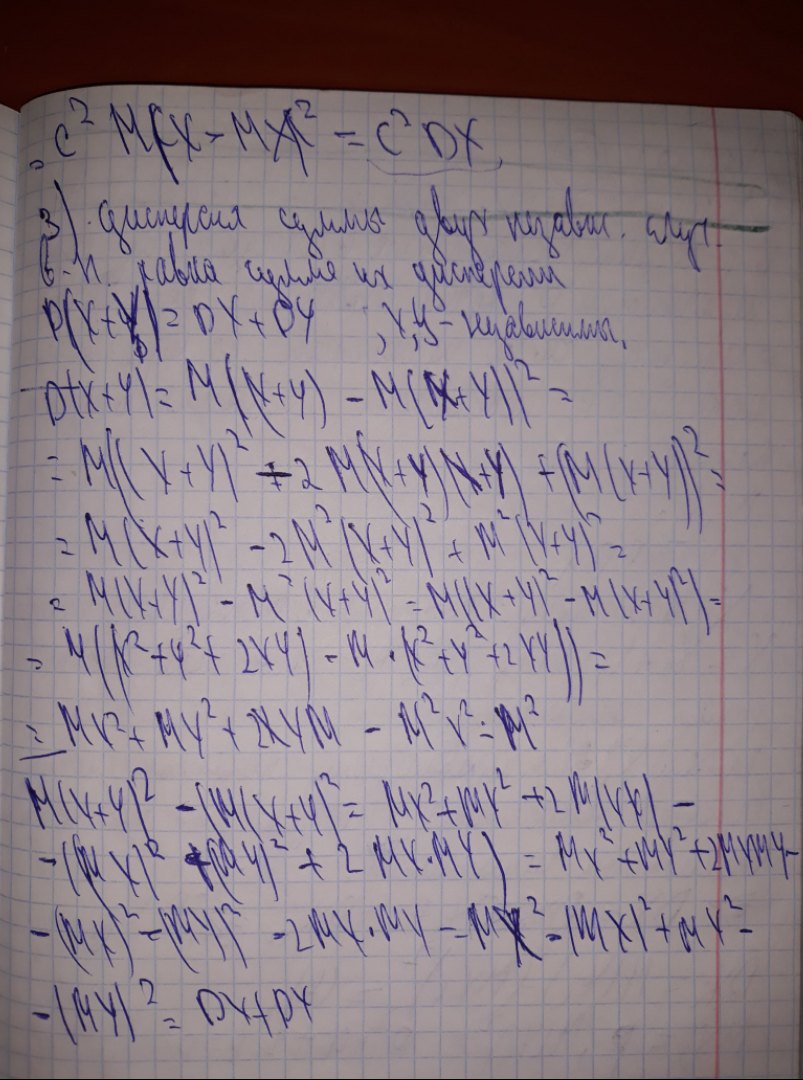 = C² M(X - MX)² = C² DX
3). Дисперсия суммы двух независ. случ.
в.п. равна сумме их дисперсии
D(X+Y) = DX + DY , X, Y - независимы.
D(X+Y) = M((X+Y) - M(X+Y))² =
= M((X+Y)² - 2 M(X+Y)(X+Y) + (M(X+Y))² =
= M(X+Y)² - 2M²(X+Y)² + M²(X+Y)² =
= M(X+Y)² - M²(X+Y)² = M((X+Y)² - M(X+Y)²) =
= M((X²+Y²+2XY) - M·(X²+Y²+2XY)) =
= MX² + MY² + 2XYM - M²X² - M²
M(X+Y)² - (M(X+Y)² = MX² + MY² + 2M(XY) -
- ((MX)² + (MY)² + 2 MX·MY) = MX² + MY² + 2MXMY -
- (MX)² - (MY)² - 2MX·MY = MX² - (MX)² + MY² -
- (MY)² = DX + DY